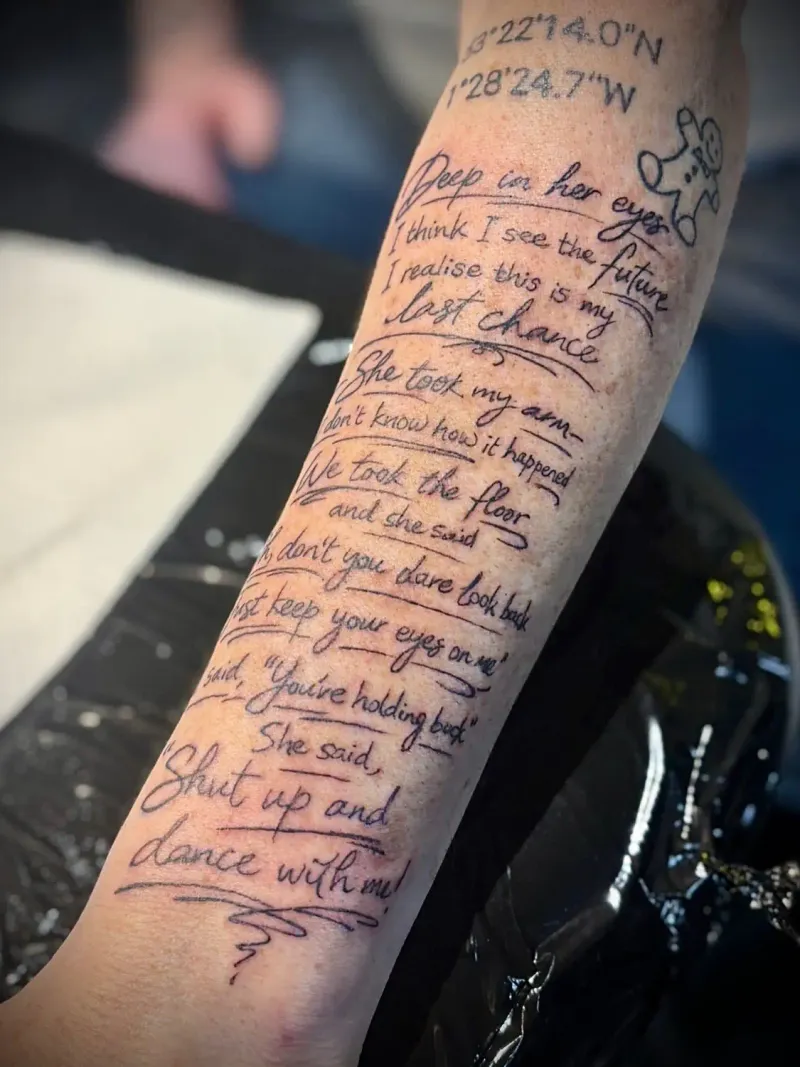 3°22'14.0"N
1°28'24.7"W
Deep in her eyes
I think I see the future
I realise this is my
last chance
She took my arm-
don't know how it happened
We took the floor
and she said
don't you dare look back
keep your eyes on me"
said, "You're holding back"
She said,
"Shut up and
dance with me!